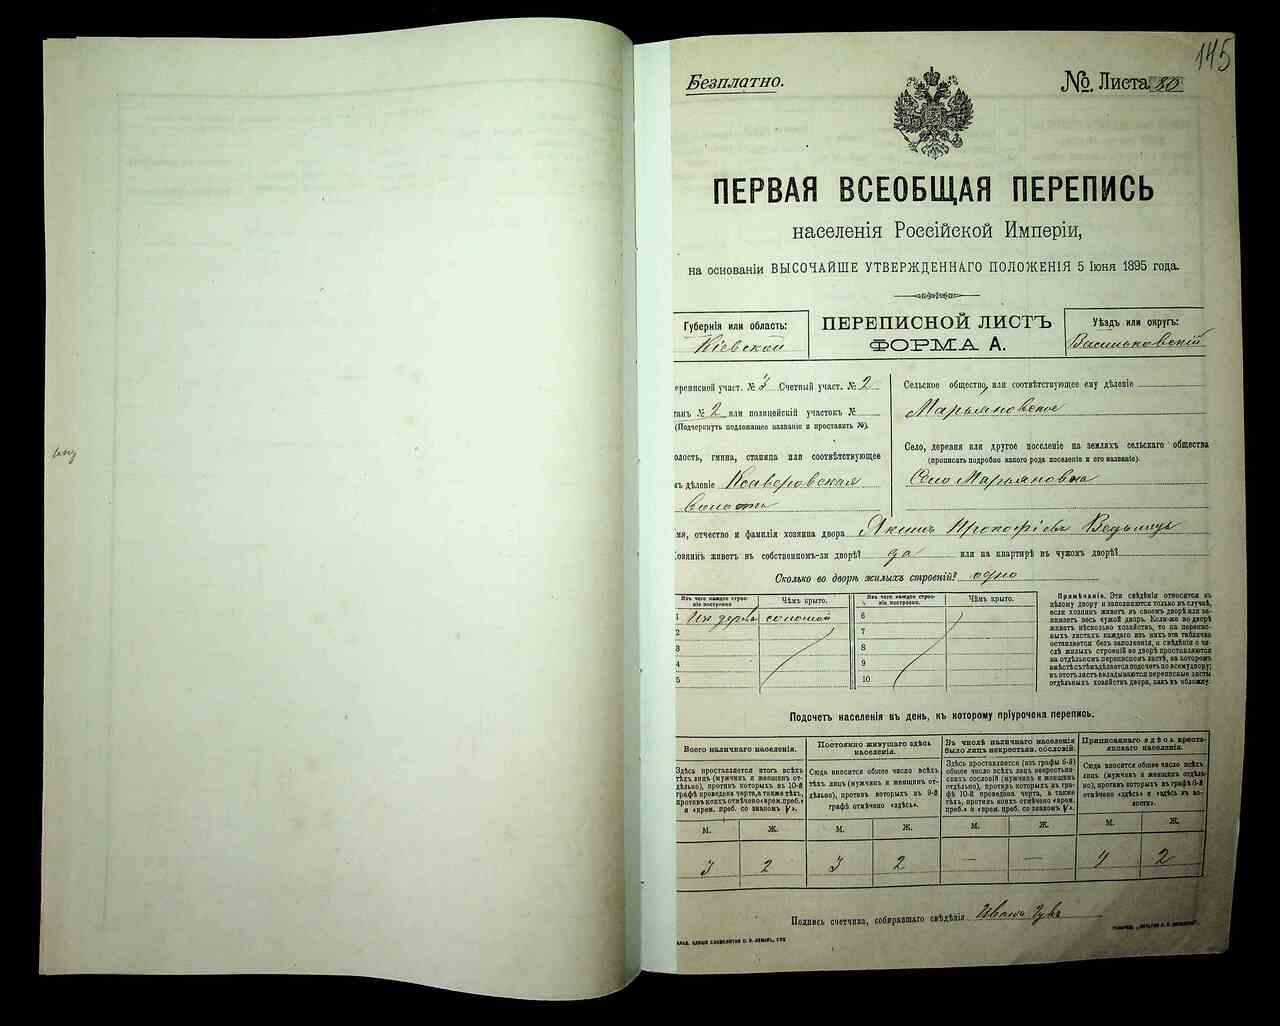 145
Безплатно.
№ Листа 80
ПЕРВАЯ ВСЕОБЩАЯ ПЕРЕПИСЬ
населенія Россійской Имперіи,
на основаніи ВЫСОЧАЙШЕ УТВЕРЖДЕННАГО ПОЛОЖЕНІЯ 5 Іюня 1895 года.
Губернія или область:
Кіевской
ПЕРЕПИСНОЙ ЛИСТЪ
ФОРМА А.
Уѣздъ или округъ:
Васильковскій
ереписной участ. № 3 Счетный участ. № 2
танъ № 2 или полицейскій участокъ №
(Подчеркнуть подлежащее названіе и проставить №).
олость, гмина, станица или соотвѣтствующее
мъ дѣленіе Ксаверовская
волость
Сельское общество, или соотвѣтствующее ему дѣленіе
Марьяновское
Село, деревня или другое поселеніе на земляхъ сельскаго общества
(прописать подробно какого рода поселеніе и его названіе).
Село Марьяновка
мя, отчество и фамилія хозяина двора Якимъ Прокофіевъ
Хозяинъ живетъ въ собственномъ-ли дворѣ? да или на квартирѣ въ чужомъ дворѣ?
Сколько во дворѣ жилыхъ строеній? одно
Изъ чего каждое строеніе построено.
Чѣмъ крыто.
Изъ чего каждое строеніе построено.
Чѣмъ крыто.
1 Изъ дерева соломой
2
3
4
5
6
7
8
9
10
Примѣчаніе. Эти свѣдѣнія относятся къ
цѣлому двору и заполняются только въ случаѣ,
если хозяинъ живетъ въ своемъ дворѣ или за-
нимаетъ весь чужой дворъ. Если-же во дворѣ
живетъ нѣсколько хозяйствъ, то на перепис-
ныхъ листахъ каждаго изъ нихъ эта табличка
оставляется безъ заполненія, а свѣдѣнія о чи-
слѣ жилыхъ строеній во дворѣ проставляются
на отдѣльномъ переписномъ листѣ, на которомъ
вмѣстѣ съ тѣмъ дѣлается подсчетъ по всему двору;
въ этотъ листъ вкладываются переписные листы
отдѣльныхъ хозяйствъ двора, какъ въ обложку.
Подсчетъ населенія въ день, къ которому пріурочена перепись.
Всего наличнаго населенія.
Здѣсь проставляется итогъ всѣхъ
тѣхъ лицъ (мужчинъ и женщинъ от-
дѣльно), противъ которыхъ въ 10-й
графѣ проведена черта, а также тѣхъ,
противъ коихъ отмѣчено «врем. преб.»
и «врем. преб. со знакомъ V».
Постоянно живущаго здѣсь
населенія.
Сюда вносится общее число всѣхъ
тѣхъ лицъ (мужчинъ и женщинъ от-
дѣльно), противъ которыхъ въ 9-й
графѣ отмѣчено «здѣсь».
Въ числѣ наличнаго населенія
было лицъ некрестьян. сословій.
Здѣсь проставляется (изъ графы 6-й)
общее число всѣхъ лицъ некрестьян-
скихъ сословій (мужчинъ и женщинъ
отдѣльно), противъ которыхъ въ гра-
фѣ 10-й проведена черта, а также
тѣхъ, противъ коихъ отмѣчено «врем.
преб.» и «врем. преб. со знакомъ V».
Приписаннаго здѣсь кресть-
янскаго населенія.
Сюда вносится общее число всѣхъ
лицъ (мужчинъ и женщинъ отдѣль-
но), противъ которыхъ въ графѣ 8-й
отмѣчено «здѣсь» и «здѣсь въ во-
лости».
М. Ж. М. Ж. М. Ж. М. Ж.
3 2 3 2 — — 4 2
Подпись счетчика, собиравшаго свѣдѣнія Иванъ